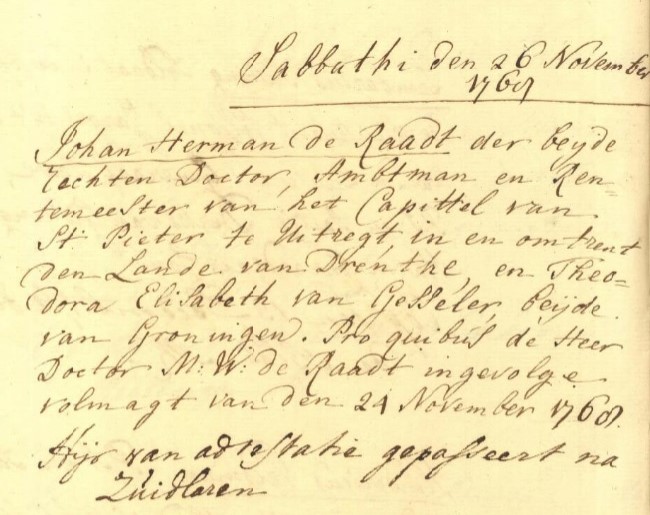 Sabbathi den 26 November
1768
Johan Herman de Raadt der beyde
Rechten Doctor, Ambtman en Ren=
temeester van het Capittel van
St. Pieter te Uitregt, in en omtrent
den Lande van Drenthe, en Theo=
dora Elisabeth van Gesseler, beijde
van Groningen. Pro quibus de Heer
Doctor M: W: de Raadt ingevolge
volmagt van den 24 November 1768.
Hijr van adtestatie gepasseert na
Zuidlaren